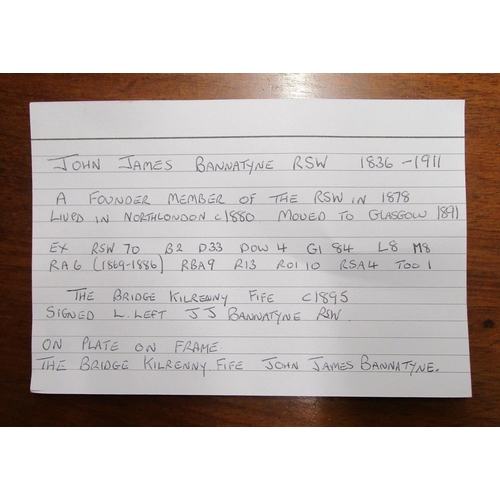 JOHN JAMES BANNATYNE RSW 1836-1911
A FOUNDER MEMBER OF THE RSW IN 1878
LIVED IN NORTH LONDON C1880 MOVED TO GLASGOW 1891
EX RSW 70 B2 D33 DOW 4 GI 84 L8 M8
RA 6 (1869-1886) RBA 9 RI3 ROI 10 RSA 4 TOO 1
THE BRIDGE KILRENNY FIFE C1895
SIGNED L. LEFT JJ BANNATYNE RSW.
ON PLATE ON FRAME
THE BRIDGE KILRENNY FIFE JOHN JAMES BANNATYNE.